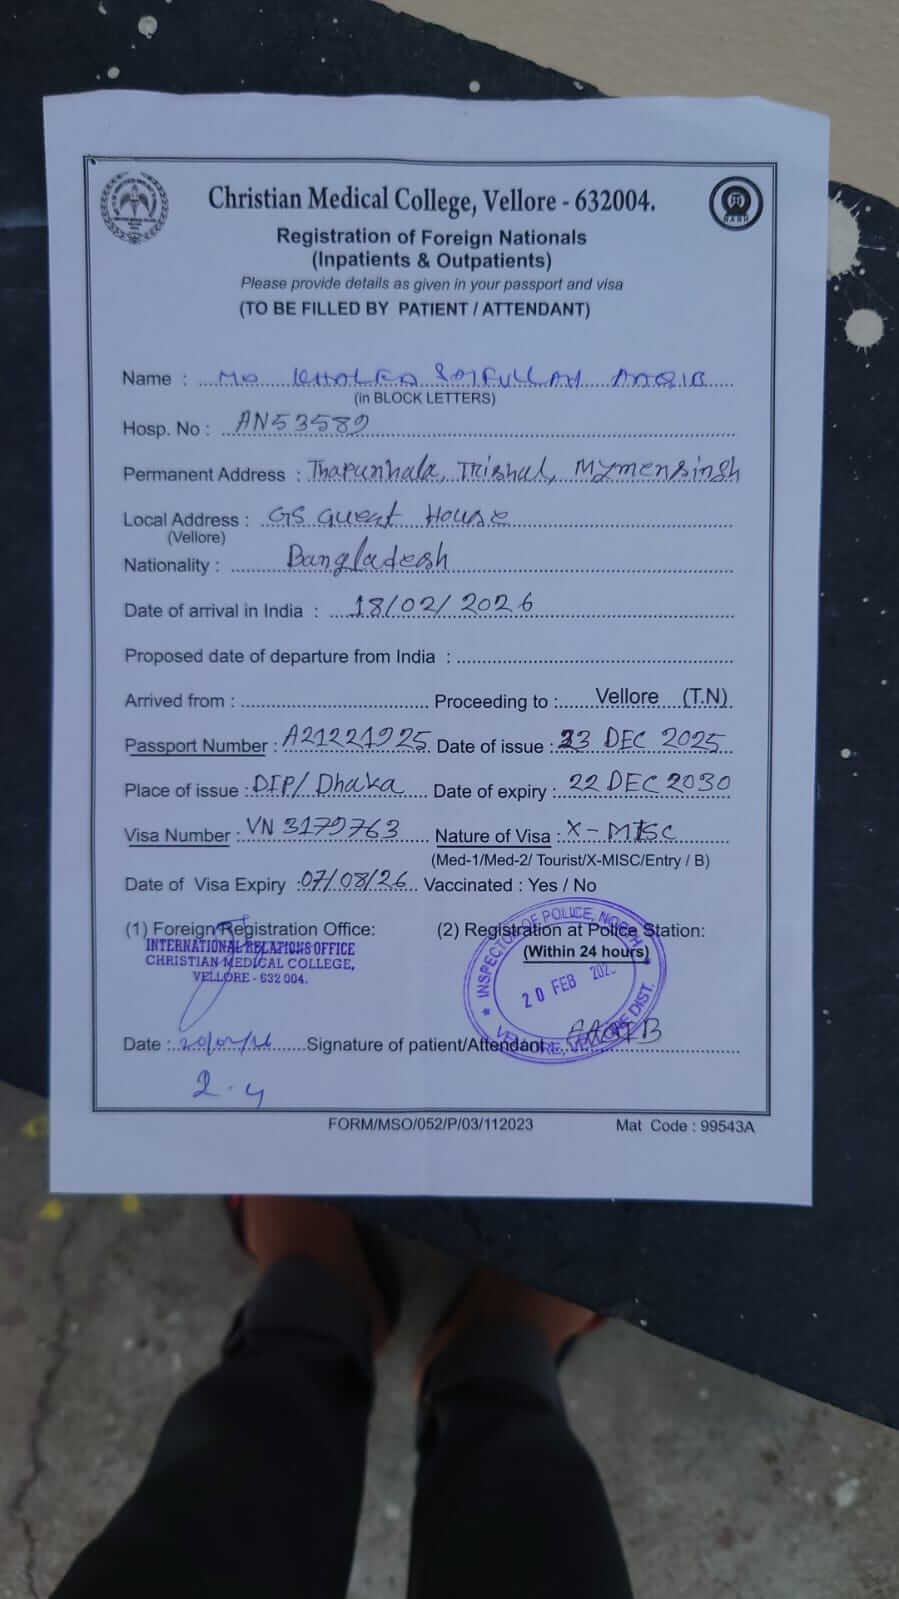 Christian Medical College, Vellore - 632004.
Registration of Foreign Nationals
(Inpatients & Outpatients)
Please provide details as given in your passport and visa
(TO BE FILLED BY PATIENT / ATTENDANT)
Name : MD KHALED SAIFULLAH AAQIB
(in BLOCK LETTERS)
Hosp. No : AN53589
Permanent Address : Trishal, Mymensingh
Local Address : GS Guest House
(Vellore)
Nationality : Bangladesh
Date of arrival in India : 18/02/2026
Proposed date of departure from India :
Arrived from : Proceeding to : Vellore (T.N)
Passport Number : A21221925 Date of issue : 23 DEC 2025
Place of issue : DIP/Dhaka Date of expiry : 22 DEC 2030
Visa Number : VN 3179763 Nature of Visa : X-MISC
(Med-1/Med-2/ Tourist/X-MISC/Entry / B)
Date of Visa Expiry : 07/08/26 Vaccinated : Yes / No
(1) Foreign Registration Office: (2) Registration at Police Station:
(Within 24 hours)
INTERNATIONAL RELATIONS OFFICE
CHRISTIAN MEDICAL COLLEGE,
VELLORE - 632 004.
INSPECTOR OF POLICE, NORTH
20 FEB
VELLORE, VELLORE DIST.
Date : 20/02/26 Signature of patient/Attendant AAQIB
FORM/MSO/052/P/03/112023 Mat Code : 99543A